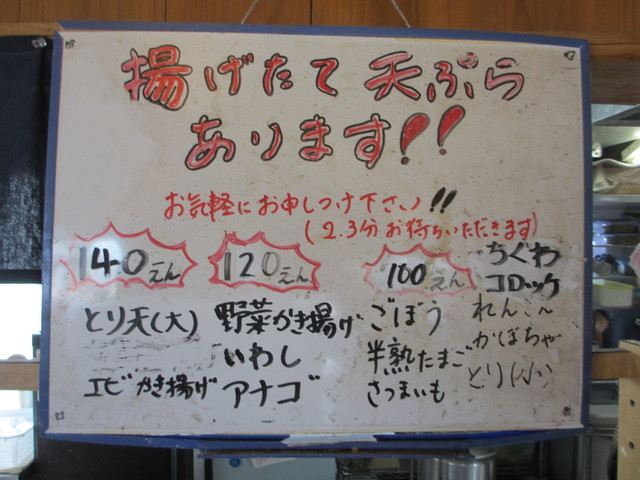 揚げたて天ぷら
あります!!
お気軽にお申しつけ下さい!!
(2.3分お待ちいただきます)
140えん
とり天(大)
エビかき揚げ
120えん
野菜かき揚げ
いわし
アナゴ
100えん
ごぼう
半熟たまご
さつまいも
ちくわ
コロッケ
れんこん
かぼちゃ
とり(小)